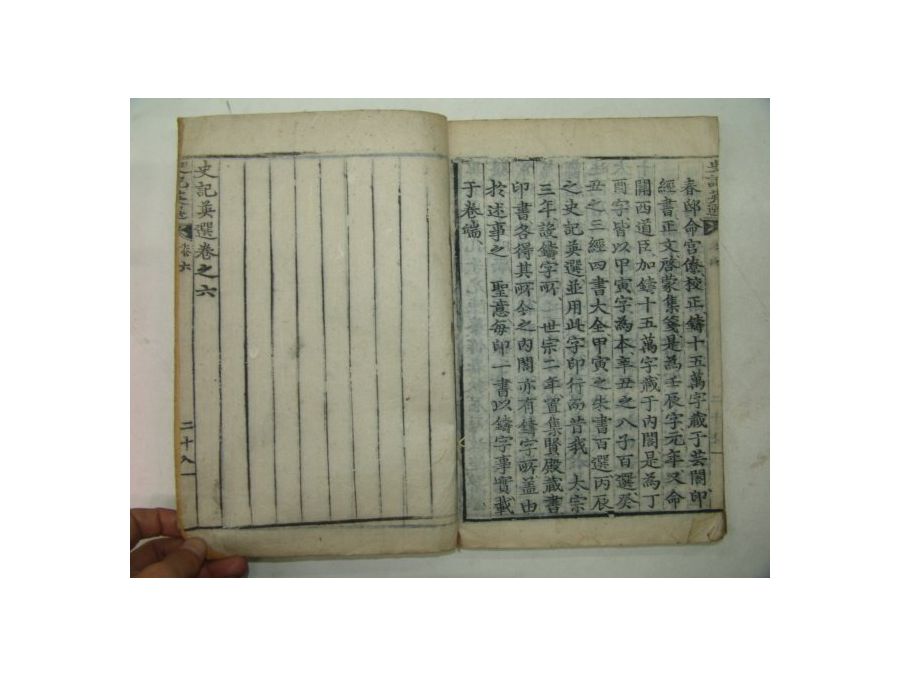 春邸命宮僚校正鑄十五萬字藏于芸閣印
經書正文啓蒙集箋是為壬辰字元年又命
關西道臣加鑄十五萬字藏于內閣是為丁
酉字皆以甲寅字為本辛丑之八子百選癸
丑之三經四書大全甲寅之朱書百選丙辰
之史記英選並用此字印行而昔我 太宗
三年設鑄字所 世宗二年置集賢殿藏書
印書各得其所今之內閣亦有鑄字所蓋由
於述事之 聖意每印一書以鑄字事實載
于卷端
史記英選卷之六
史記英選
卷六
二十八